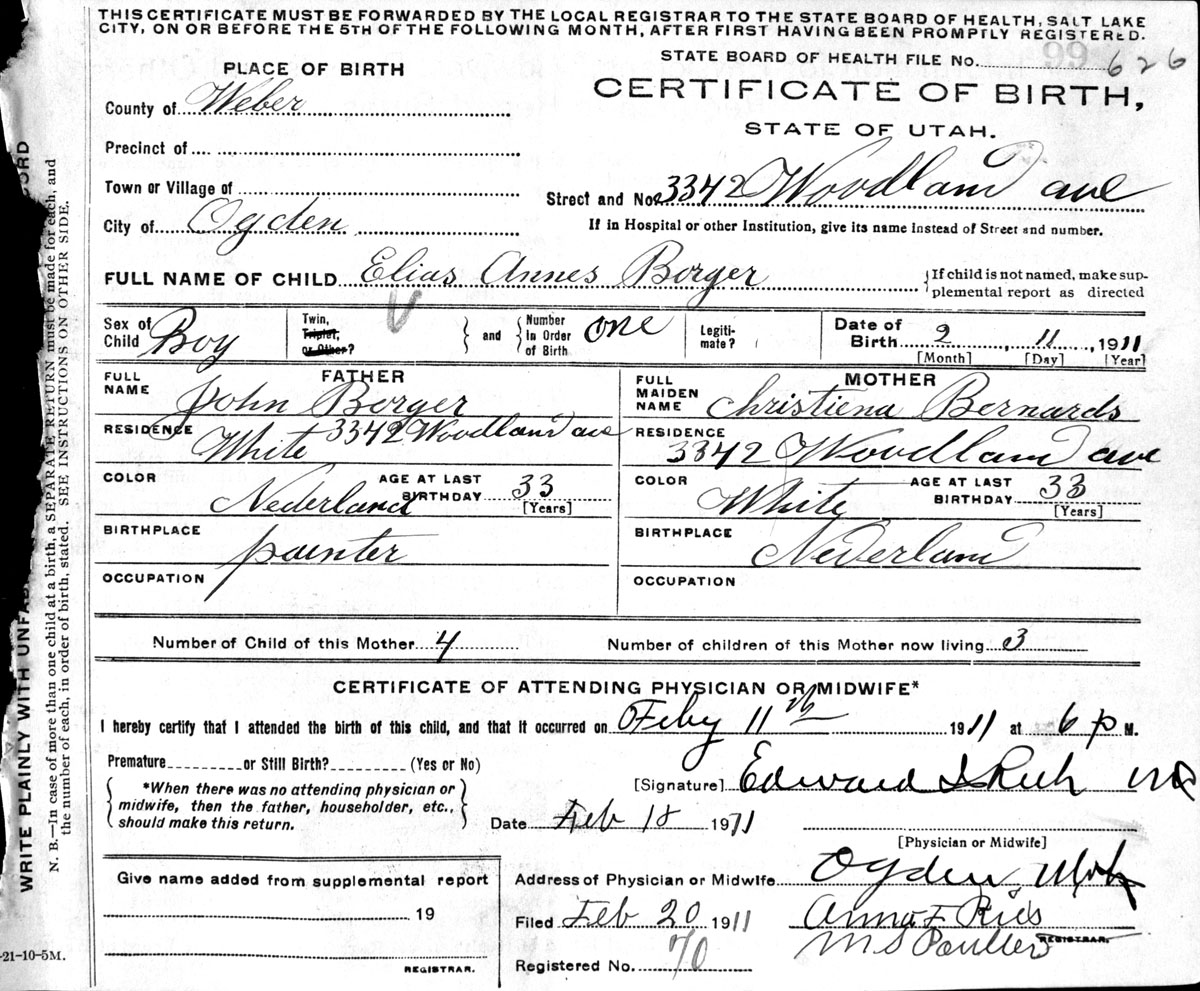 THIS CERTIFICATE MUST BE FORWARDED BY THE LOCAL REGISTRAR TO THE STATE BOARD OF HEALTH, SALT LAKE
CITY, ON OR BEFORE THE 5TH OF THE FOLLOWING MONTH, AFTER FIRST HAVING BEEN PROMPTLY REGISTERED.
STATE BOARD OF HEALTH FILE No. 626
PLACE OF BIRTH
CERTIFICATE OF BIRTH,
STATE OF UTAH.
County of Weber
Precinct of
Town or Village of
Street and No. 3342 Woodland ave
City of Ogden
If in Hospital or other Institution, give its name instead of Street and number.
FULL NAME OF CHILD Elias Annes Borger
{If child is not named, make sup-
plemental report as directed
Sex of Child Boy
Twin, Triplet, or Other?
and
Number In Order of Birth one
Legiti-mate?
Date of Birth 2, 11, 1911
[Month] [Day] [Year]
FATHER
FULL NAME John Borger
RESIDENCE 3342 Woodland ave
White
COLOR
AGE AT LAST BIRTHDAY 33
[Years]
Nederland
BIRTHPLACE
painter
OCCUPATION
MOTHER
FULL MAIDEN NAME Christiena Bernards
RESIDENCE
3342 Woodland ave
COLOR White
AGE AT LAST BIRTHDAY 33
[Years]
BIRTHPLACE Nederland
OCCUPATION
Number of Child of this Mother 4
Number of children of this Mother now living 3
CERTIFICATE OF ATTENDING PHYSICIAN OR MIDWIFE*
I hereby certify that I attended the birth of this child, and that it occurred on Feby 11th 1911 at 6 p M.
Premature or Still Birth? (Yes or No)
*When there was no attending physician or
midwife, then the father, householder, etc.,
should make this return.
[Signature] Edward I Rich MD
Date Feb 18 1911
[Physician or Midwife]
Give name added from supplemental report
19
REGISTRAR.
Address of Physician or Midwife Ogden, Utah
Filed Feb 20 1911
Anna F
M S
REGISTRAR.
Registered No. 70
WRITE PLAINLY WITH
N. B.—In case of more than one child at a birth, a SEPARATE RETURN must be made for each, and
the number of each, in order of birth, stated. SEE INSTRUCTIONS ON OTHER SIDE.
-21-10-5M.